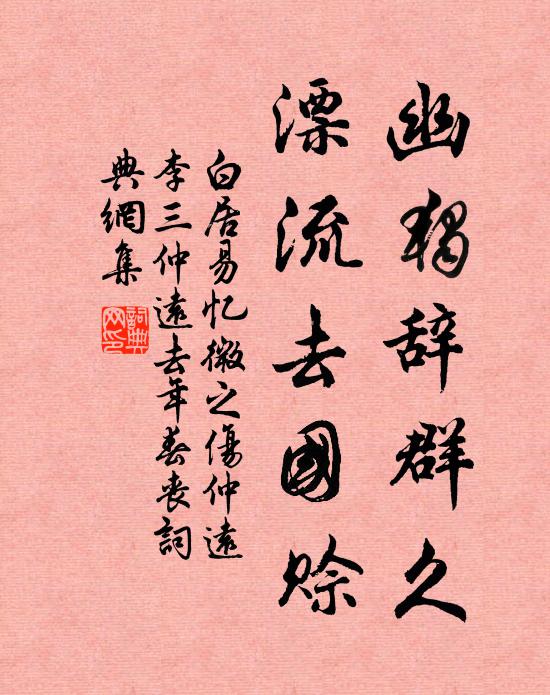 幽獨辞群久
漂流去國賒
白居易忆微之傷仲遠
李三仲遠去年春喪詞
典網集
詞典
网印